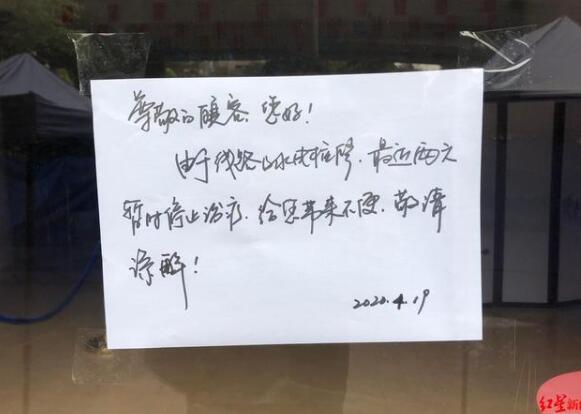 尊敬的顾客,您好!
由于线路障,最近两天
暂时停止治疗,给您带来不便,敬请
谅解!
2020.4.19
红星新